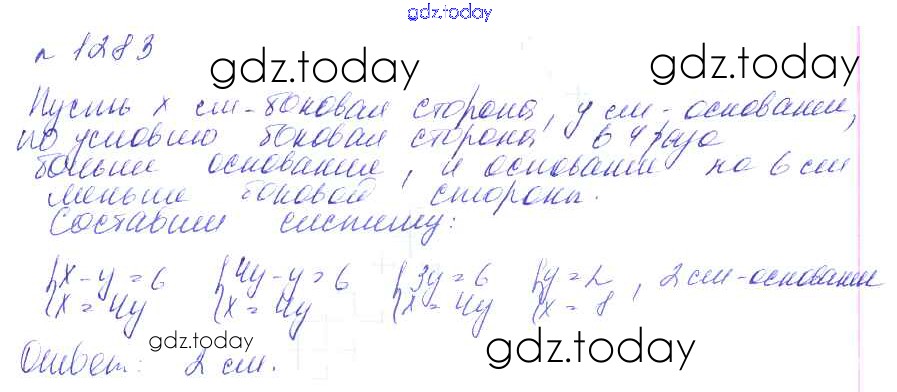 gdz.today
№ 1283
gdz.today gdz.today
Пусть x см - боковая сторона, y см - основание,
по условию боковая сторона в 4 раза
больше основание, и основание на 6 см
меньше боковой стороны.
Составим систему:
{x - y = 6 {4y - y = 6 {3y = 6 {y = 2, 2 см - основание
{x = 4y {x = 4y {x = 4y {x = 8
gdz.today gdz.today
Ответ: 2 см.